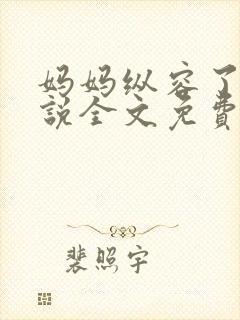 妈妈纵容了
说全文免費
裴照宇